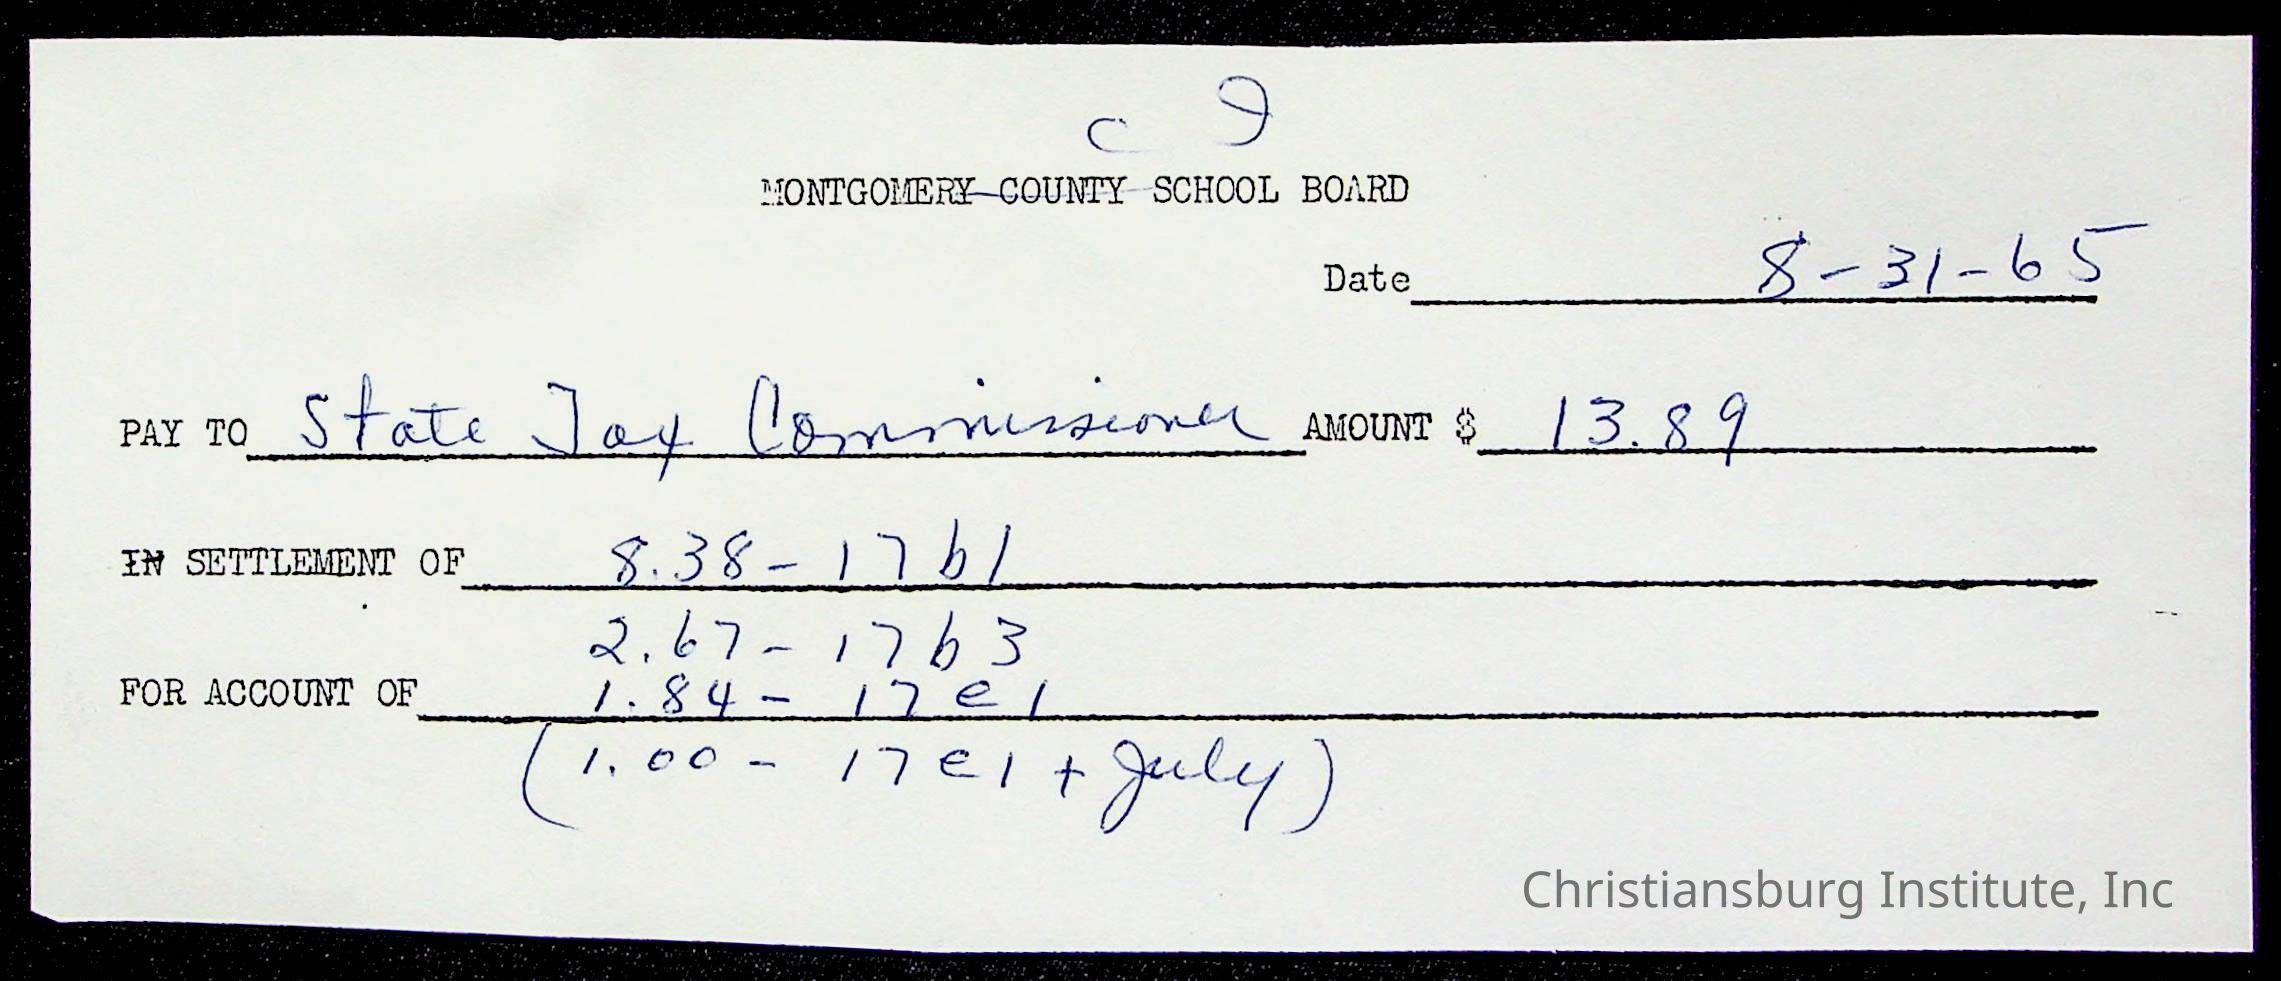 C I
MONTGOMERY COUNTY SCHOOL BOARD
Date 8-31-65
PAY TO State Tax Commissioner AMOUNT $ 13.89
IN SETTLEMENT OF 8.38 - 17b1
2.67 - 17b3
FOR ACCOUNT OF 1.84 - 17e1
(1.00 - 17e1 + July)
Christiansburg Institute, Inc